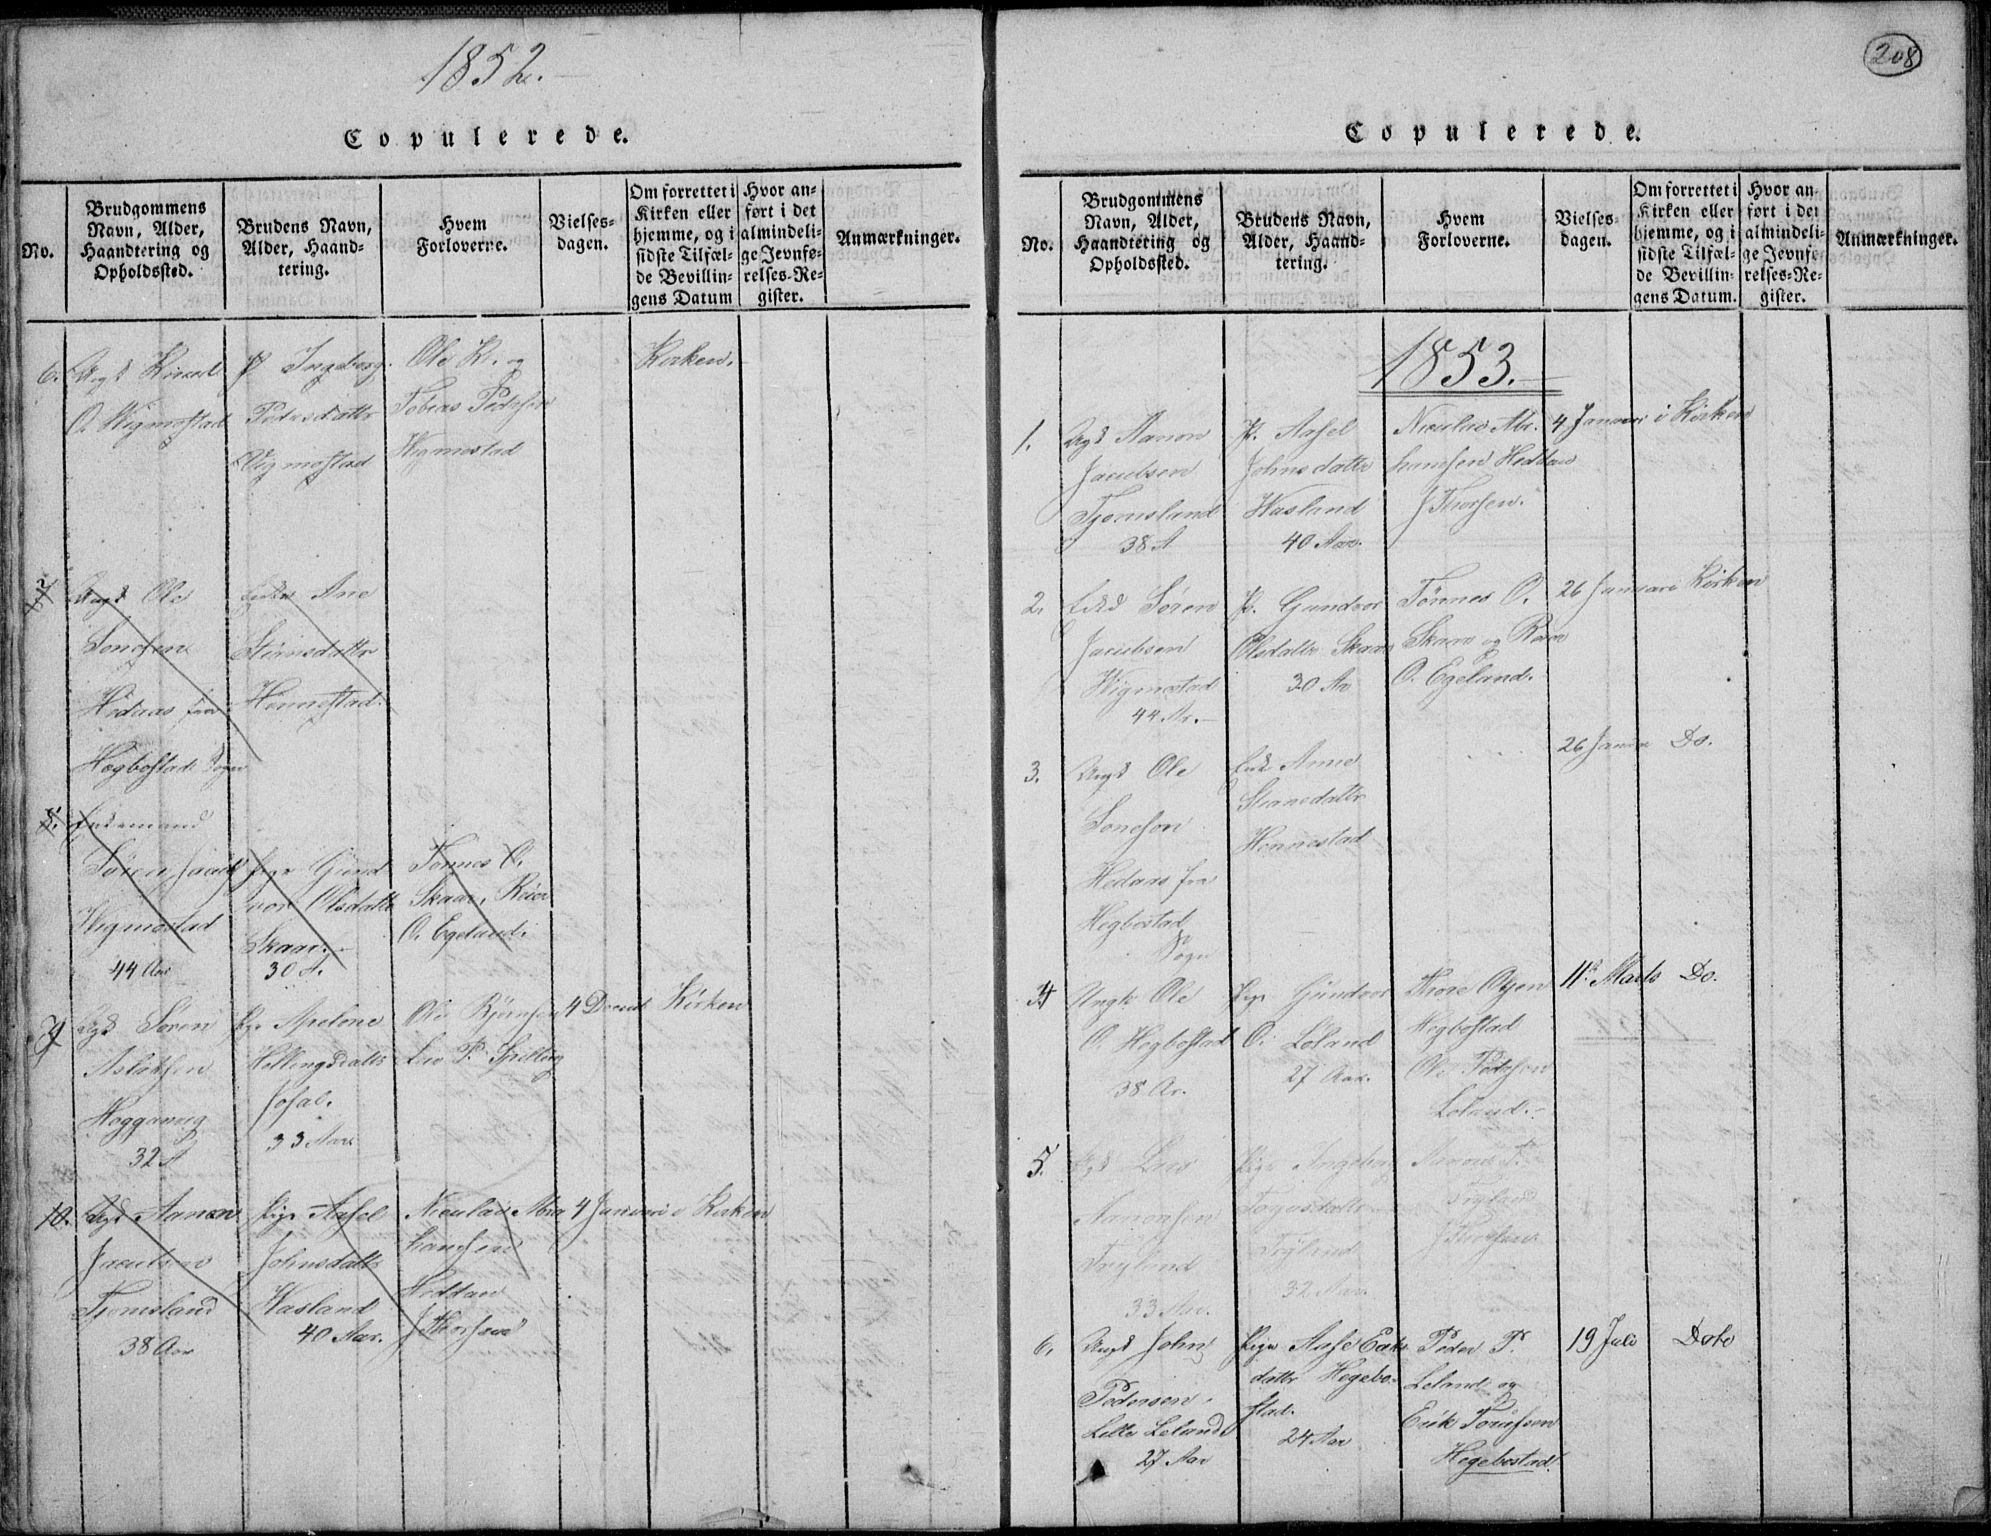 1852.
Copulerede.
No.
Brudgommens Navn, Alder, Haandtering og Opholdssted.
Brudens Navn, Alder, Haandtering.
Hvem Forloverne.
Vielsesdagen.
Om forrettet i Kirken eller hjemme, og i sidste Tilfælde Bevillingens Datum
Hvor anført i det almindelige Jevnførelses-Register.
Anmærkninger.
6.
O. Wigmostad
P. Ingeborg
Pedersdattr
Vigmostad
Ole K. og
Tobias Pedersen
Wigmostad
Kirken.
7
Ungk Ole
Sonesen
Hedaas fra
Hægbostad Sogn
Enke Ane
Stiansdattr
Hennestad.
8.
Enkemand
Søren Jacobs
Wigmostad
44 Aar
Pige Gund
vor Olsdattr
Skaar.
30 A.
Tønnes O.
Skaar, Reier
O. Egeland.
9
Søren
Aslaksen
32 A
Pige Apelone
33 Aar
Ole Bjørnsen
4 Decemb
Kirken
10.
Aanon
Jacobsen
Tjomsland
38 Aar
Pige Aasel
Johnsdattr
Wasland
40 Aar.
Nicolai Abra
hamsen
Heddan
J Thorsen
4 Januari i Kirken
208
Copulerede.
No.
Brudgommens Navn, Alder, Haandtering og Opholdssted.
Brudens Navn, Alder, Haandtering.
Hvem Forloverne.
Vielsesdagen.
Om forrettet i Kirken eller hjemme, og i sidste Tilfælde Bevillingens Datum.
Hvor anført i det almindelige Jevnførelses-Register.
Anmærkninger.
1853.
1.
Aanon
Jacobsen
Tjomsland
38 A
P. Aasel
Johnsdattr
Wasland
40 Aar.
Nicolai Abr.
hamsen Heddan
J Thorsen.
4 Januari i Kirken
2.
Søren
Jacobsen
Wigmostad
44 Ar.
P. Gundvor
Olsdattr Skaar
30 Aar
Tønnes O.
Skaar og Reier
O. Egeland.
26 Januari Kirken
3.
Ungk Ole
Sonesen
Hedaas fra
Hegbostad
Sogn
Enke Anne
Stiansdattr
Hennestad
26 Januar Do.
4
Ungk Ole
O. Hegbostad
38 Ar.
Pige Gundvor
O. Løland
27 Aar.
Thore Osen
Hegbostad
Ole Pedersen
Løland.
11 Marts Do.
5.
Lars
Aanonsen
Tryland
33 Aar.
Pige Ingeborg
Tryland
32 Aar.
Tryland
J Thorsen
6.
Ungk John
Pedersen
Lille Leland
27 Aar
Pige Aase Eriks
dattr Hegebo-
stad.
24 Aar
Peder P.
Leland og
Erik
Hegebostad.
19 Juli Dito